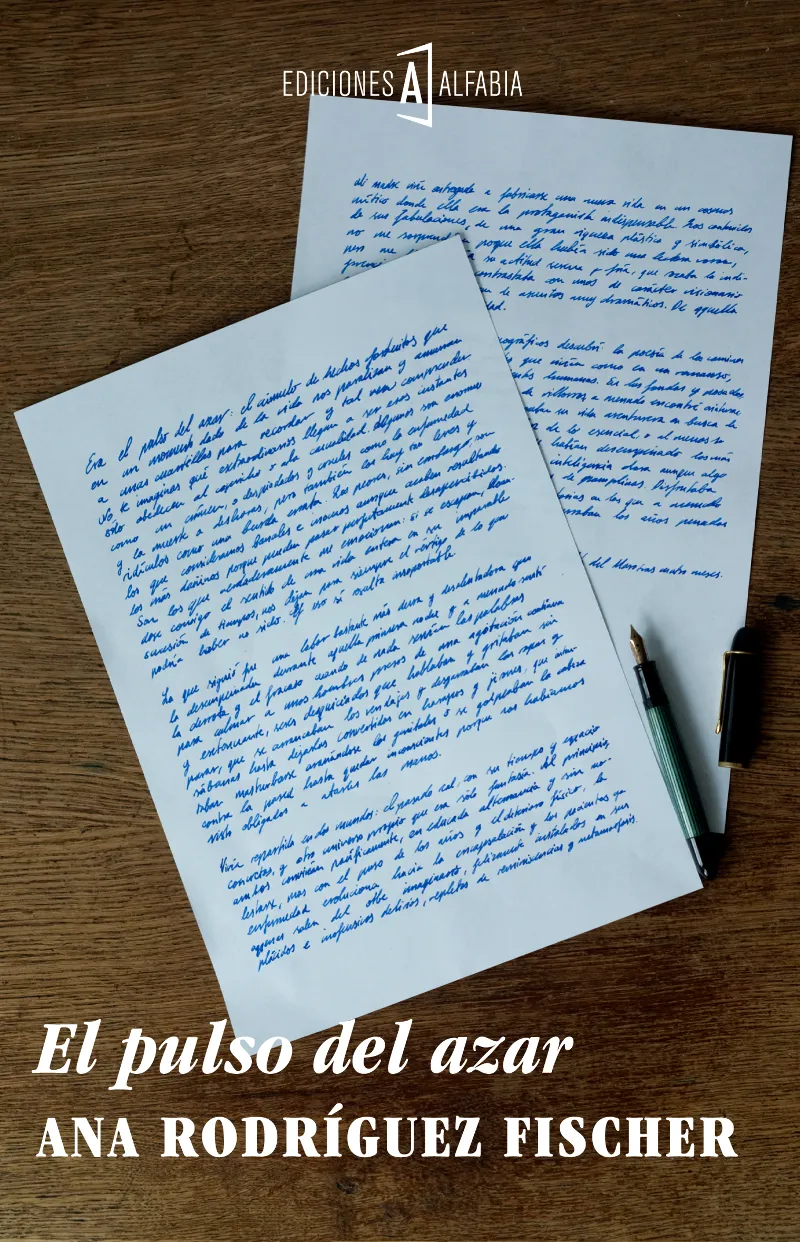 EDICIONES A ALFABIA
Mi madre vivía entregada a fabricarse una nueva vida en un cosmos
mítico donde ella era la protagonista indispensable. Los contenidos
de sus fabulaciones, de una gran riqueza plástica y simbólica,
no me porque ella había sido una lectora voraz,
pero me su actitud serena y fría, que
contrastaba con unos de carácter visionario
de asuntos muy dramáticos. De aquella
dad.
descubrí la poesía de los caminos
que vivía como en un remanso,
humanos. En las fondas y posadas
de villorrios a menudo encontré
su vida aventurera en busca de
de lo esencial o al menos
habían desencuadernado los más
inteligencia clara aunque algo
de pamplinas. Disfrutaba
en las que a menudo
los años pasados
del Massinas cuatro meses.
Era el pulso del azar: el cúmulo de hechos fortuitos que
en un momento dado de la vida nos paralizan y arruman
a unas cuartillas para recordar y tal vez comprender
No te imaginas qué extraordinarios llegan a ser esos instantes
sólo obedecen al capricho o a la casualidad. Algunos son enormes
como un cáncer, o despiadados y crueles como la enfermedad
y la muerte a deshoras, pero también los hay tan leves y
ridículos como una burda errata. Los peores, sin embargo, son
los que consideramos banales e inocuos aunque acaben resultando
los más dañinos porque pueden pasar perfectamente desapercibidos.
Son los que verdaderamente me emocionan: si se escapan, llevan-
dose consigo el sentido de una vida entera en su imparable
sucesión de tiempos, nos dejan para siempre el vértigo de lo que
podría haber no sido. Y eso sí resulta insoportable.
Lo que siguió fue una labor bastante más dura y desalentadora que
la desempeñada durante aquella primera noche y a menudo sentí
la derrota y el fracaso cuando de nada servían las palabras
para calmar a unos hombres presos de una agitación continua
y extenuante, seres desquiciados que hablaban y gritaban sin
parar, que se arrancaban los vendajes y desgarraban las ropas y
sábanas hasta dejarlos convertidos en harapos y jirones, que inten-
taban masturbarse arañándose los genitales o se golpeaban la cabeza
contra la pared hasta quedar inconscientes porque nos habíamos
visto obligados a atarles las manos.
Vivía repartida en dos mundos: el pasado real, con su tiempo y espacio
concretos, y otro universo propio que era sólo fantasía. Al principio,
ambos convivían pacíficamente, en educada alternancia y sin mo-
lestarse, mas con el paso de los años y el deterioro físico, la
enfermedad evoluciona hacia la encapsulación y los pacientes ya
apenas salen del orbe imaginario, felizmente instalados en sus
plácidos e inofensivos delirios, repletos de reminiscencias y metamorfosis.
El pulso del azar
ANA RODRÍGUEZ FISCHER